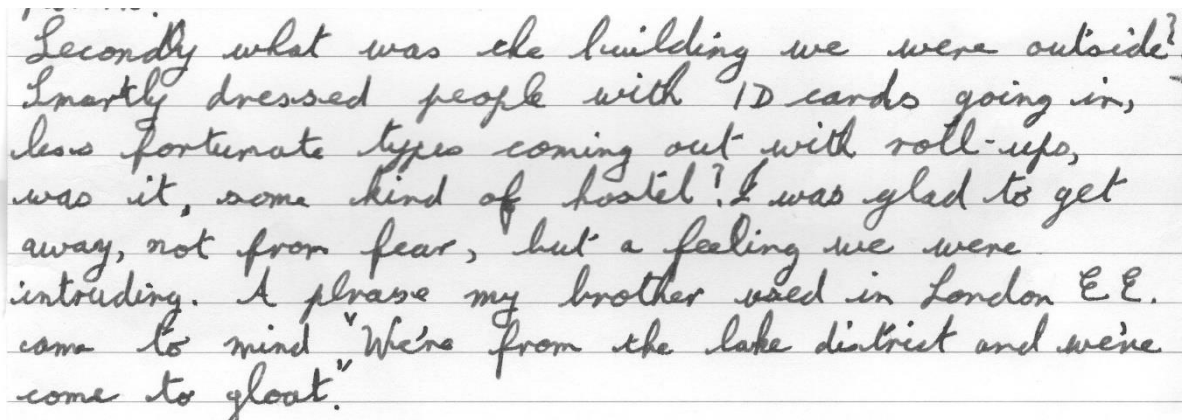 Secondly what was the building we were outside?
Smartly dressed people with ID cards going in,
less fortunate types coming out with roll-ups,
was it, some kind of hostel? I was glad to get
away, not from fear, but a feeling we were
intruding. A phrase my brother used in London E E.
came to mind "We're from the lake district and we've
come to gloat."